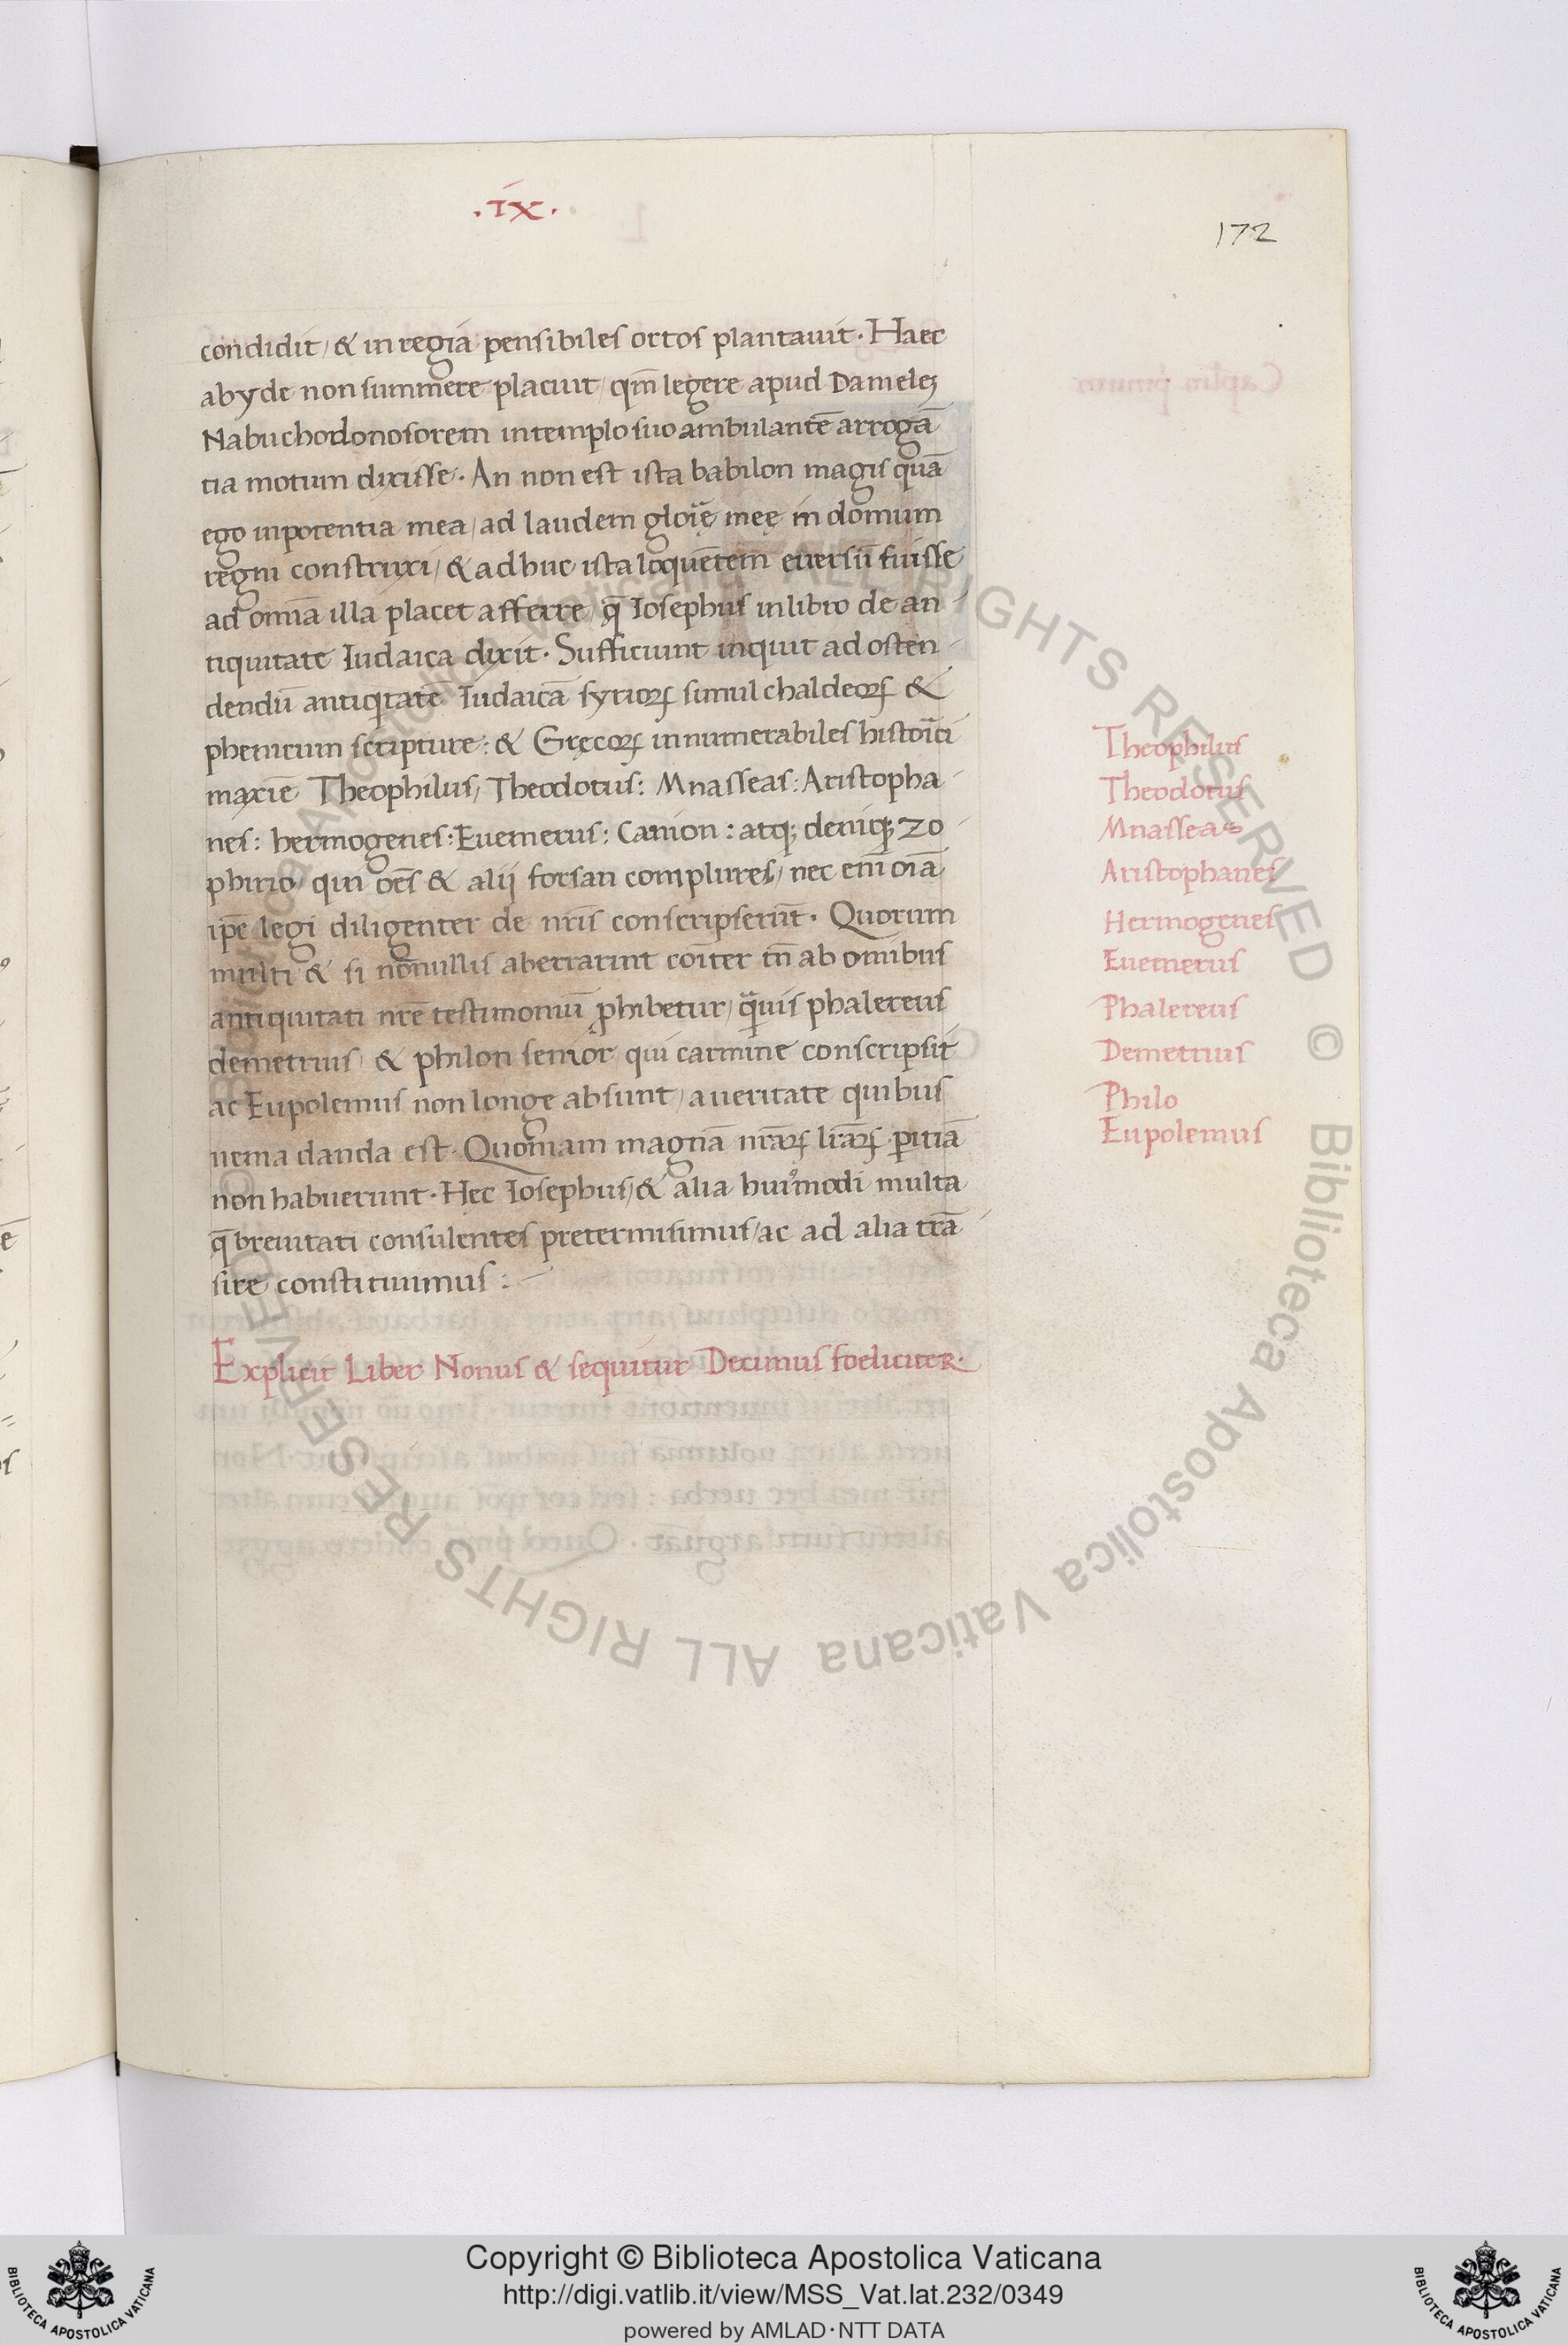 .ix.
172
condidit / & in regia pensibiles ortos plantauit · Haec
abyde non summere placuit / qm̄ legere apud Danielez
Nabuchodonosorem in templo suo ambulantē arrogā
tia motum dixisse · An non est ista babilon magis quā
ego in potentia mea / ad laudem gloię meę in domum
regni construxi / & adhuc ista loquētem euersū fuisse
ad omīa illa placet afferre / q̄ Iosephus in libro de an
tiquitate Iudaica dixit · Sufficiunt inquit ad osten
dendū antiqtatē Iudaicā syrioꝝ simul chaldeoꝝ &
phenicum scripture : & Gręcoꝝ innumerabiles histoici
maxīe Theophilus / Theodotus : Mnasseas : Aristopha
nes : hermogenes : Euemerus : Canion : atq; deniq; zo
phirio / qui oēs & alij forsan complures / nec enī oīa
ipē legi diligenter de nrīs conscripserūt · Quorum
multi & si nōnullis aberrarint coīter tn̄ ab omībus
antiquitati nrē testimoniū ꝓhibetur / quis phalereus
demetrius / & philon senior qui carmine conscripsit
ac Eupolemus non longe absunt / a ueritate quibus
uenia danda est · Quoniam magnā nrāꝝ lrāꝝ ꝑitiā
non habuerunt · Hec Iosephus / & alia huiꝰmodi multa
q̄ breuitati consulentes pretermisimus / ac ad alia trā
sire constituimus : –
Explicit Liber Nonus & sequitur Decimus foeliciter ·
Theophilus
Theodotus
Mnasseas
Aristophanes
Hermogenes
Euemerus
Phalereus
Demetrius
Philo
Eupolemus
© Biblioteca Apostolica Vaticana ALL RIGHTS RESERVED © Biblioteca Apostolica Vaticana ALL RIGHTS RESERVED
Copyright © Biblioteca Apostolica Vaticana
http://digi.vatlib.it/view/MSS_Vat.lat.232/0349
powered by AMLAD·NTT DATA
BIBLIOTECA APOSTOLICA VATICANA
BIBLIOTECA APOSTOLICA VATICANA